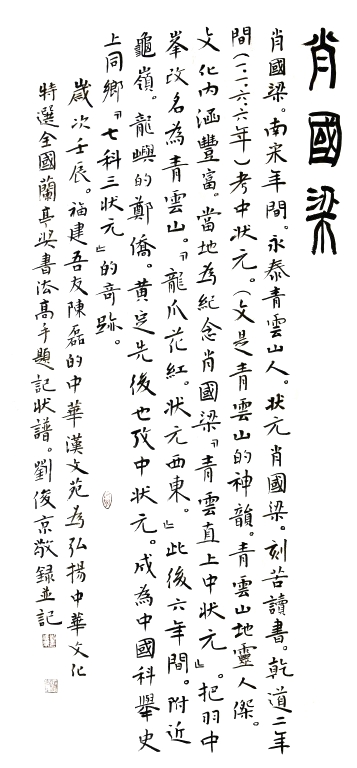 肖國梁
肖國梁。南宋年間。永泰青雲山人。狀元肖國梁。刻苦讀書。乾道二年
間(一一六六年)考中狀元。(文是青雲山的神韻。青雲山地靈人傑。
文化内涵豐富。當地為紀念肖國梁『青雲直上中狀元』。把羽中
峯改名為青雲山。『龍爪花紅。狀元西東。』此後六年間。附近
龜嶺。龍嶼的鄭僑。黃定先後也攷中狀元。成為中國科舉史
上同鄉『七科三狀元』的奇跡。
歲次壬辰。福建吾友陳磊的中華漢文苑為弘揚中華文化
特選全國蘭亭奖書法高手題記狀譜。劉俊京敬錄並記